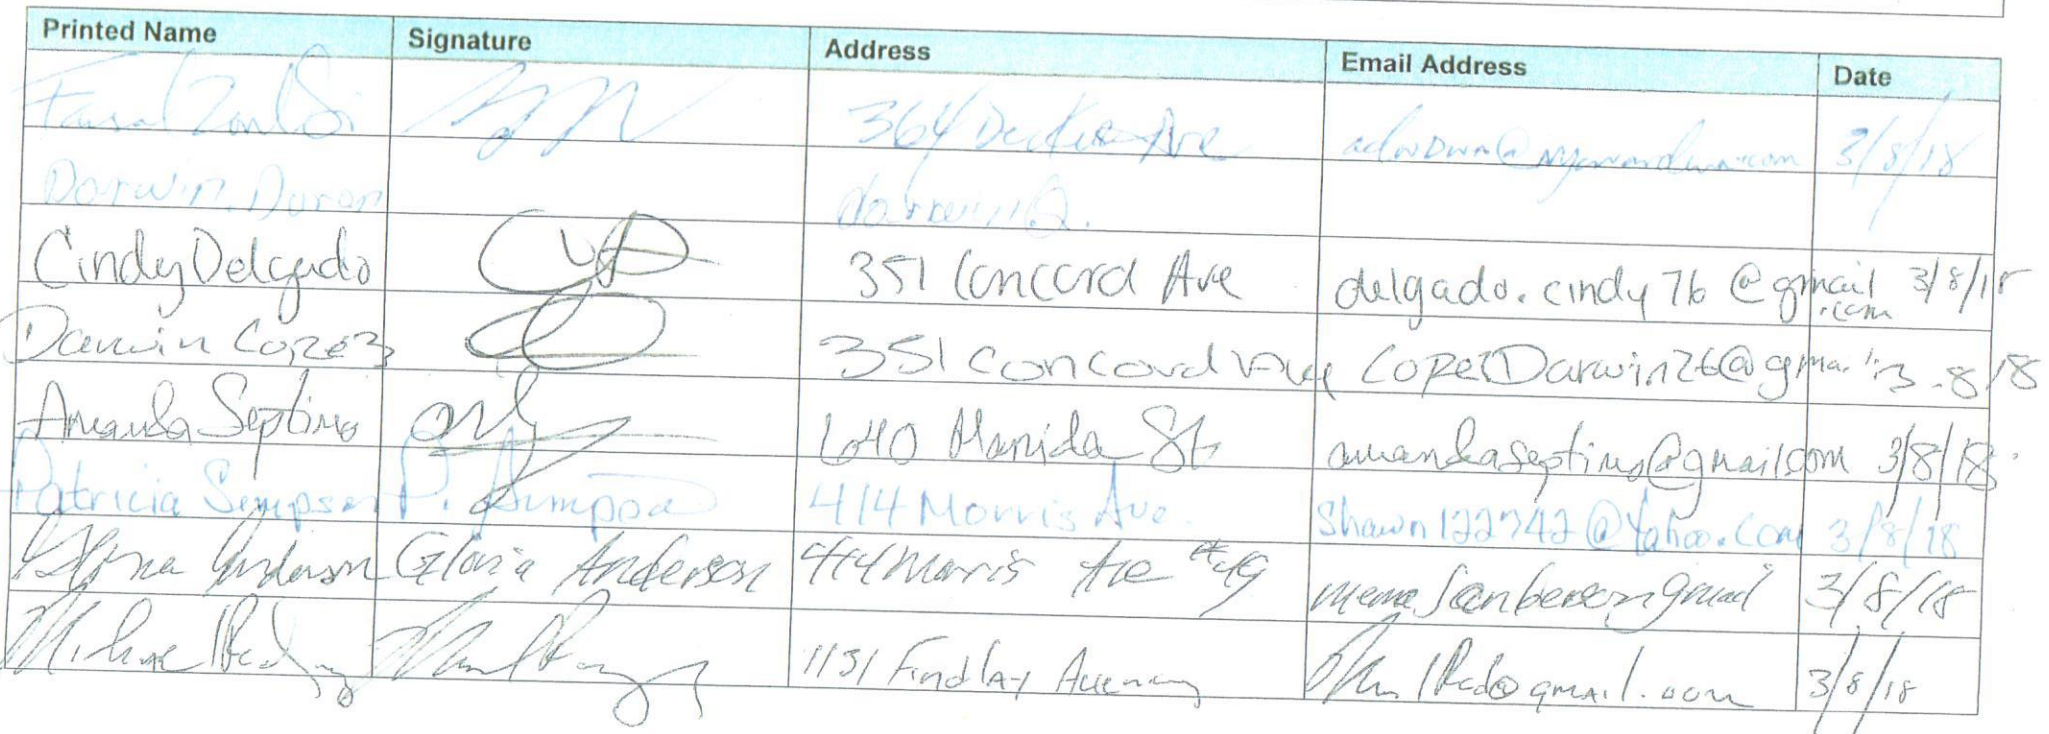 Printed Name Signature Address Email Address Date
364 Decker Ave 3/8/18
Darwin Duran
Cindy Delgado 351 Concord Ave delgado.cindy76@gmail.com 3/8/18
Darwin Lopez 351 Concord Ave LopezDarwin26@gmail 3-8/18
Amanda Septimo 640 Manida St. amandaseptimo@gmail.com 3/8/18
Patricia Sempson P. Sempson 414 Morris Ave. Shawn122742@Yahoo.com 3/8/18
Gloria Anderson Gloria Anderson 414 Morris Ave #49 3/8/18
1131 Findlay Avenue 3/8/18